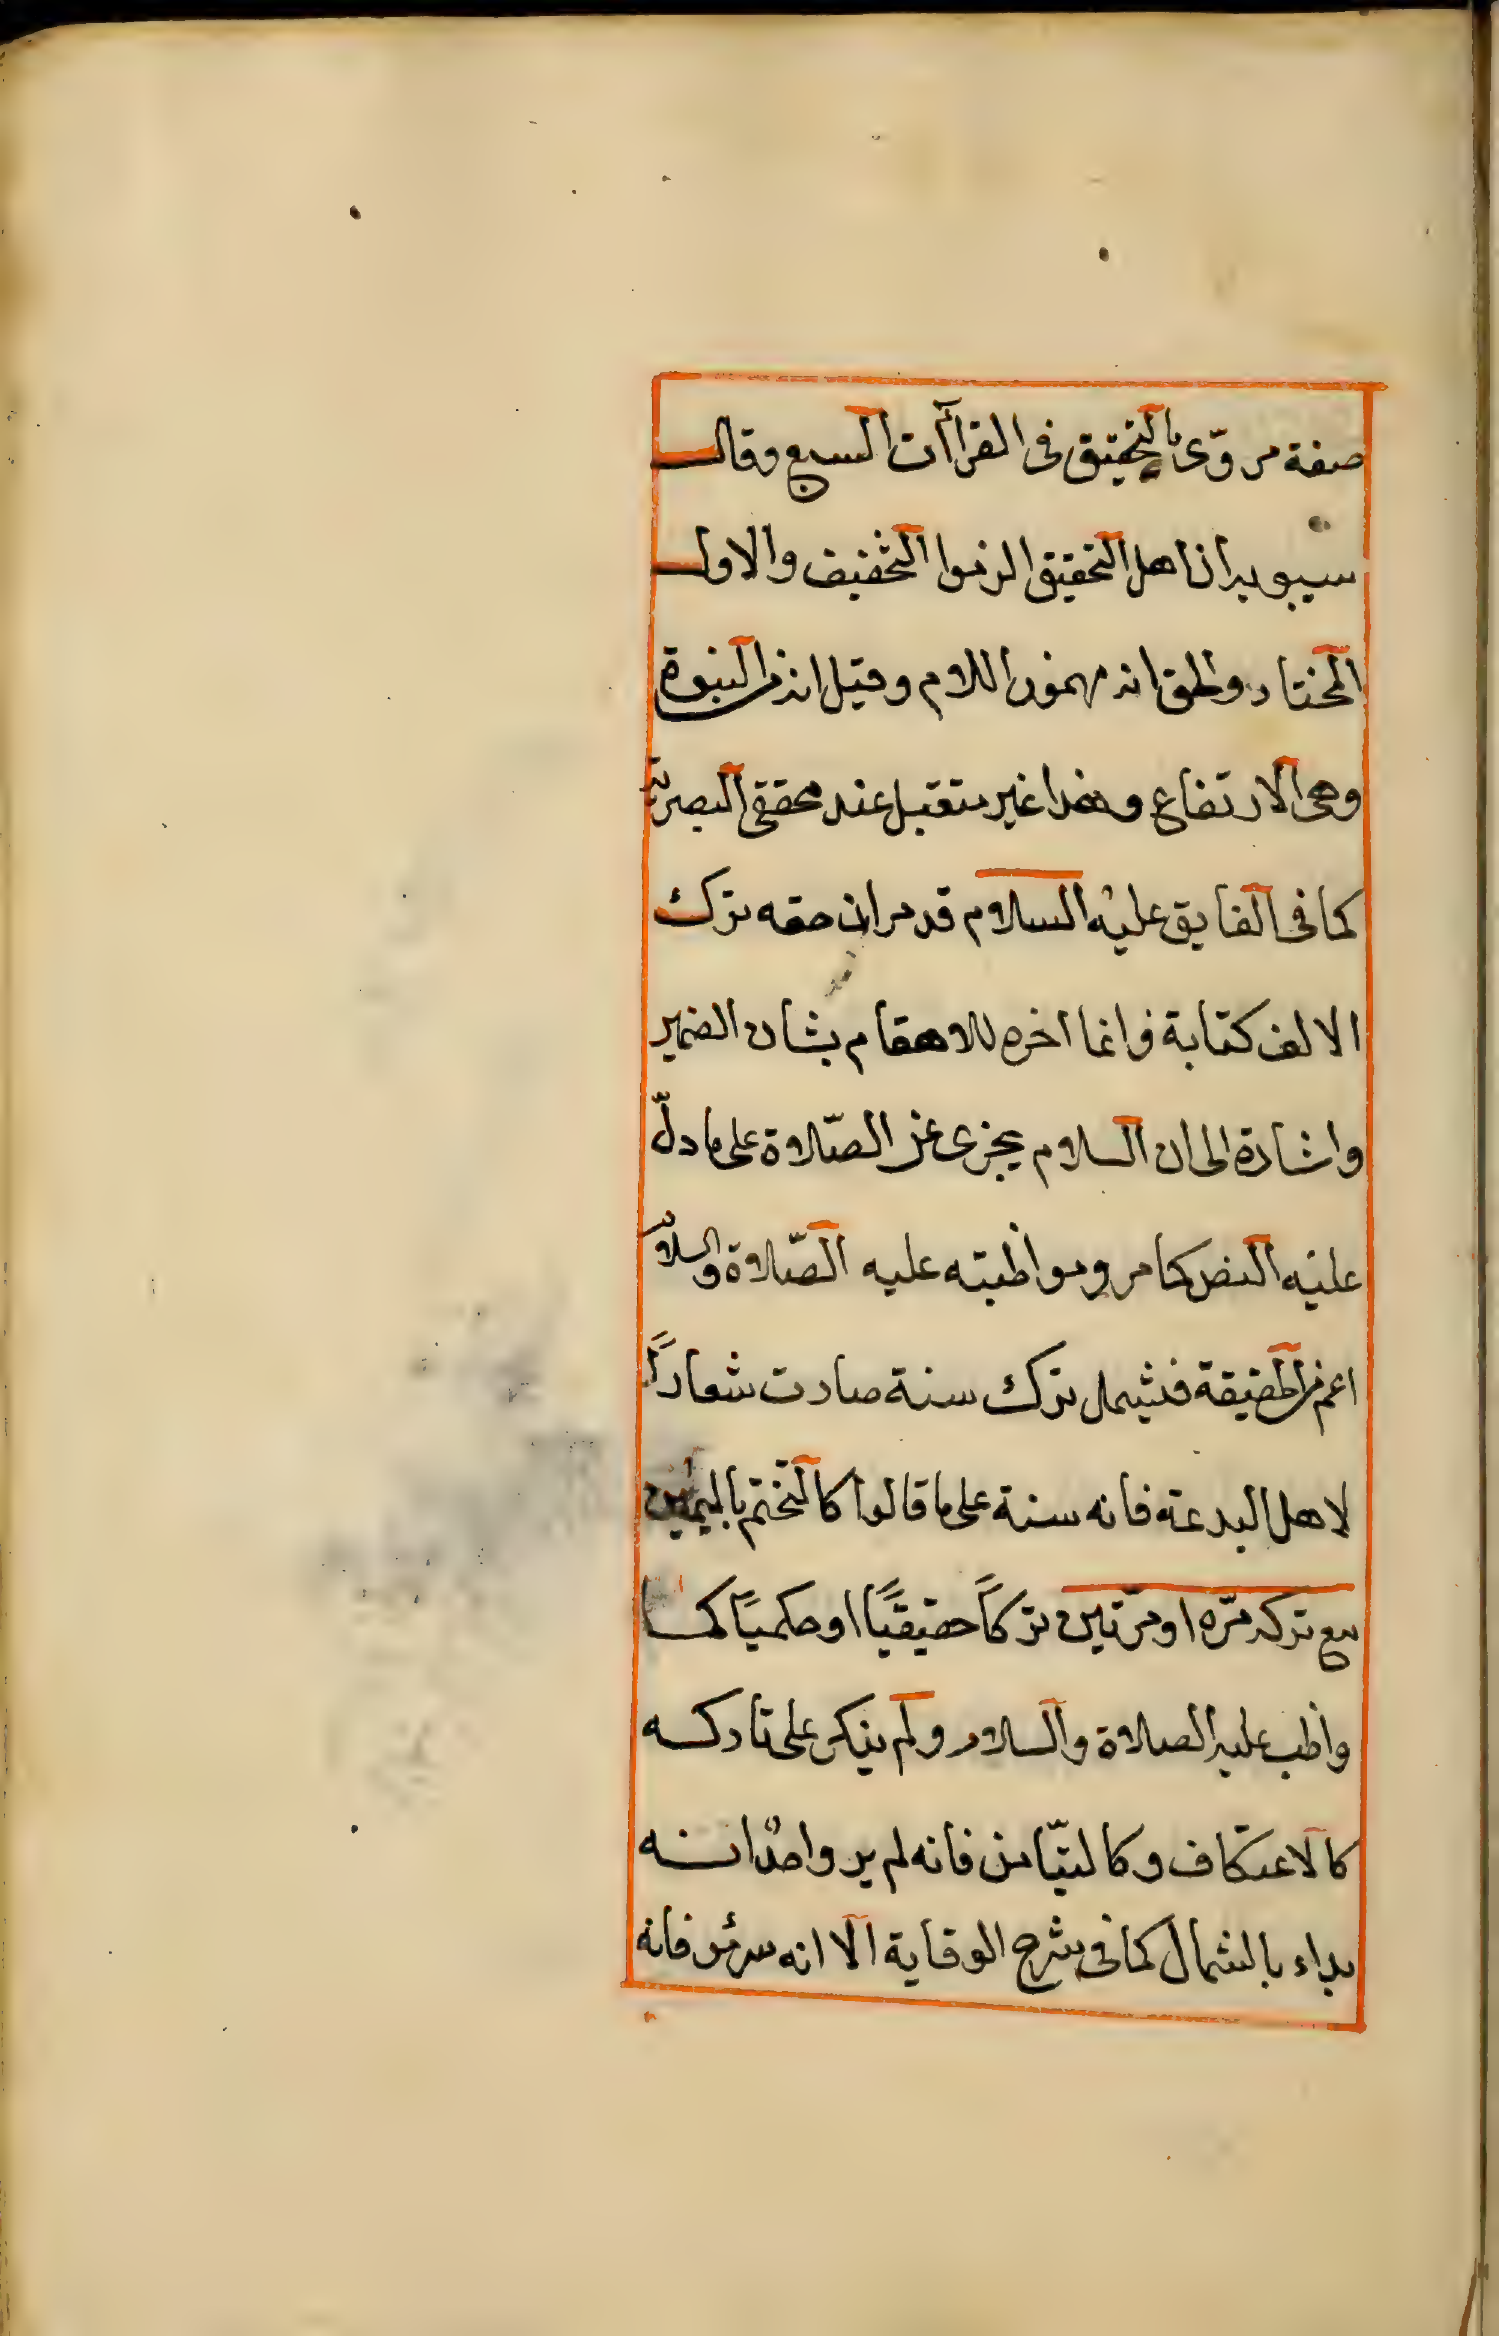 صفة مروّى بالتحقيق فى القراآت السبع وقال
سيبويه ان اهل التحقيق الزموا التخفيف والاول
المختار والحق انه مهموز اللام وقيل انه من النبوة
وهى الارتفاع وهذا غير متقبل عند محققى البصرية
كما فى الفايق عليه السلام قد مر ان حقه ترك
الالف كتابة وانما اخره للاهتمام بشان الضمير
واشارة الى ان السلام يجزى عن الصّلاة على ما دلّ
عليه النص كما مر ومواظبته عليه الصّلاة والسلام
اعم من الحقيقة فيشمل ترك سنة صارت شعاراً
لاهل البدعة فانه سنة على ما قالوا كالتختم باليمين
مع تركه مرّه او مرّتين تركاً حقيقيًا او حكميًا كما
واظب عليه الصلاة والسلام ولم ينكر على تاركه
كالاعتكاف وكالتيّامن فانه لم يرو احد انه
بداء بالشمال كما فى شرح الوقاية الا انه فانه